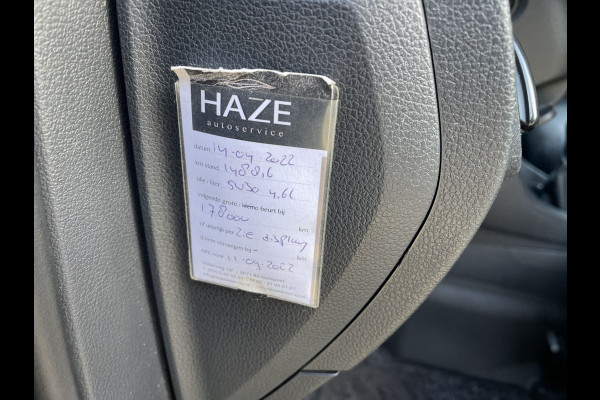 HAZE
autoservice
datum: 14-04 2022
km stand: 148816
olie / liter: 5W30 4.6L
volgende grote / kleine beurt bij
178000 km
of uiterlijk per Zie display
d-riem vervangen bij - km
APK voor: 11-09-2022